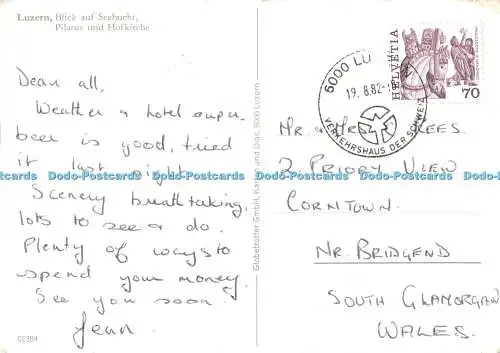 Luzern, Blick auf Seebucht,
Pilatus und Hofkirche
Dear all,
Weather & hotel super.
beer is good, tried
it last night.
Scenery breathtaking,
lots to see & do.
Plenty of ways to
spend your money.
See you soon.
Jean.
00384
Globetrotter GmbH, Karten und Dias, 6000 Luzern
6000 LU
19.8.82
VERKEHRSHAUS DER SCHWEIZ
HELVETIA
70
Mr & Mrs Lees.
2 Priory View
Corntown.
Nr. Bridgend
South Glamorgan
Wales.
Dodo-Postcards Dodo-Postcards Dodo-Postcards Dodo-Postcards Dodo-Postcards